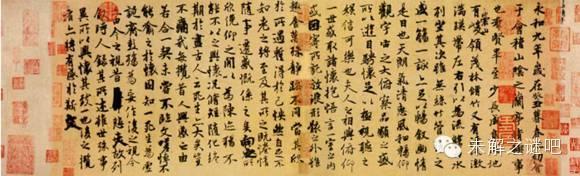 永和九年歲在癸丑暮春之初會
于會稽山陰之蘭亭脩禊事
也群賢畢至少長咸集此地
有崇山峻領茂林脩竹又有清流激
湍暎帶左右引以為流觴曲水
列坐其次雖無絲竹管弦之
盛一觴一詠亦足以暢敘幽情
是日也天朗氣清惠風和暢仰
觀宇宙之大俯察品類之盛
所以遊目騁懷足以極視聽之
娛信可樂也夫人之相與俯仰
一世或取諸懷抱悟言一室之內
或因寄所託放浪形骸之外雖
趣舍萬殊靜躁不同當其欣
於所遇蹔得於己怏然自足不
知老之將至及其所之既惓情
隨事遷感慨係之矣向之所
欣俛仰之閒以為陳迹猶不
能不以之興懷況脩短隨化終
期於盡古人云死生亦大矣豈
不痛哉每攬昔人興感之由
若合一契未嘗不臨文嗟悼不
能喻之於懷固知一死生為虛
誕齊彭殤為妄作後之視今
亦由今之視昔悲夫故列
敘時人錄其所述雖世殊事
異所以興懷其致一也後之攬
者亦將有感於斯文
未解之谜吧